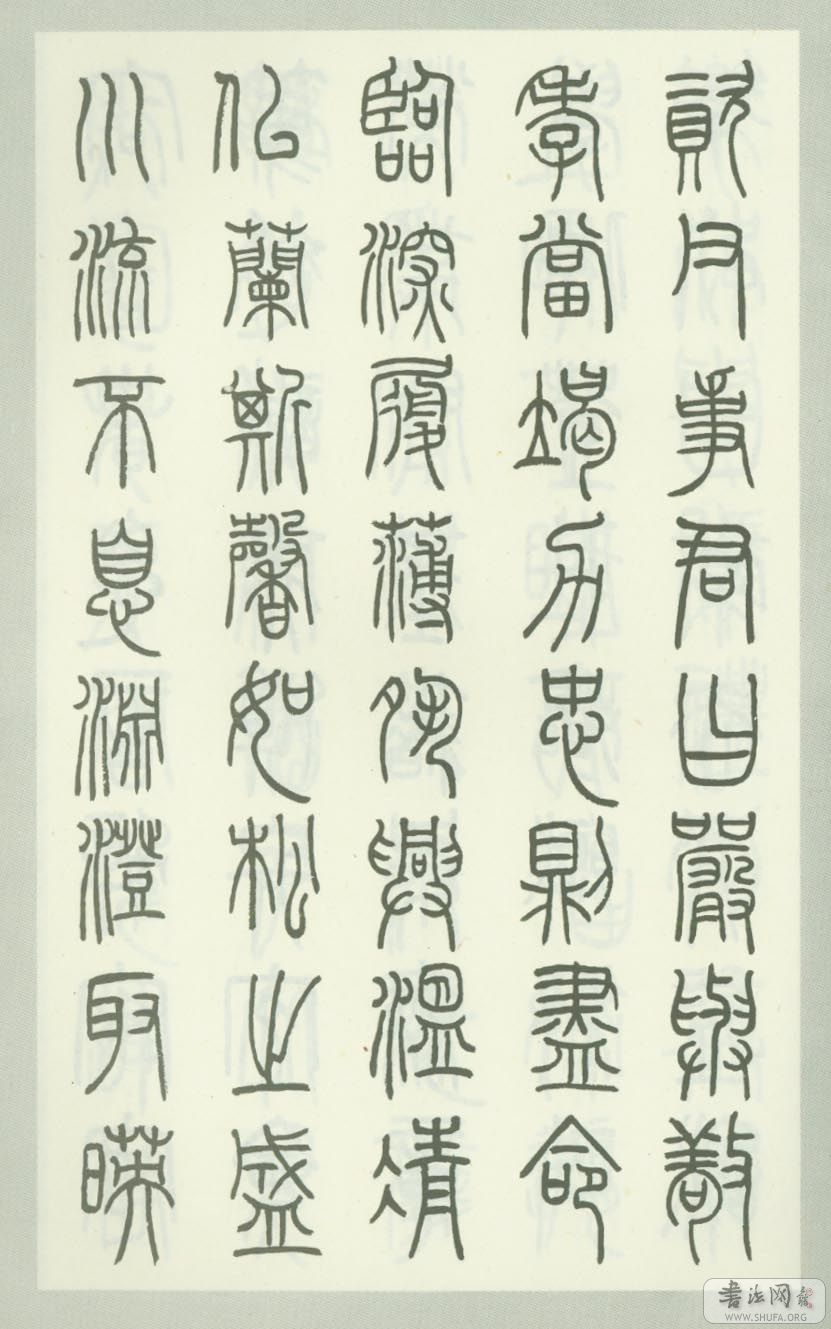 資父事君曰嚴與敬
孝當竭力忠則盡命
臨深履薄夙興溫凊
似蘭斯馨如松之盛
川流不息淵澄取暎
書法网
WWW.SHUFA.ORG